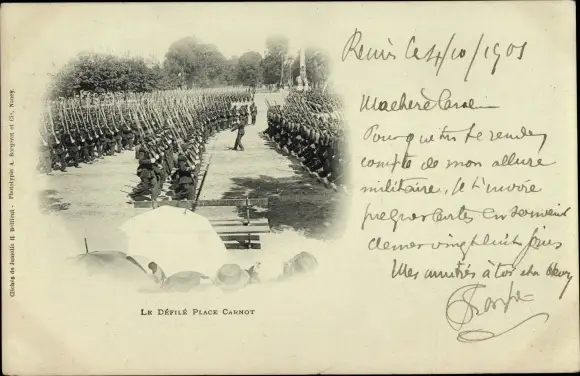 Clichés de Jamelle (J. Bellieni) - Phototypie A. Bergeret et Cie, Nancy
LE DÉFILÉ PLACE CARNOT
Reims le 4/10/1903
Ma chère
Pour que tu te rendes
compte de mon allure
militaire, Je t'envoie
quelques cartes en souvenir
de mes vingt huit jours
Mes amitiés à tos